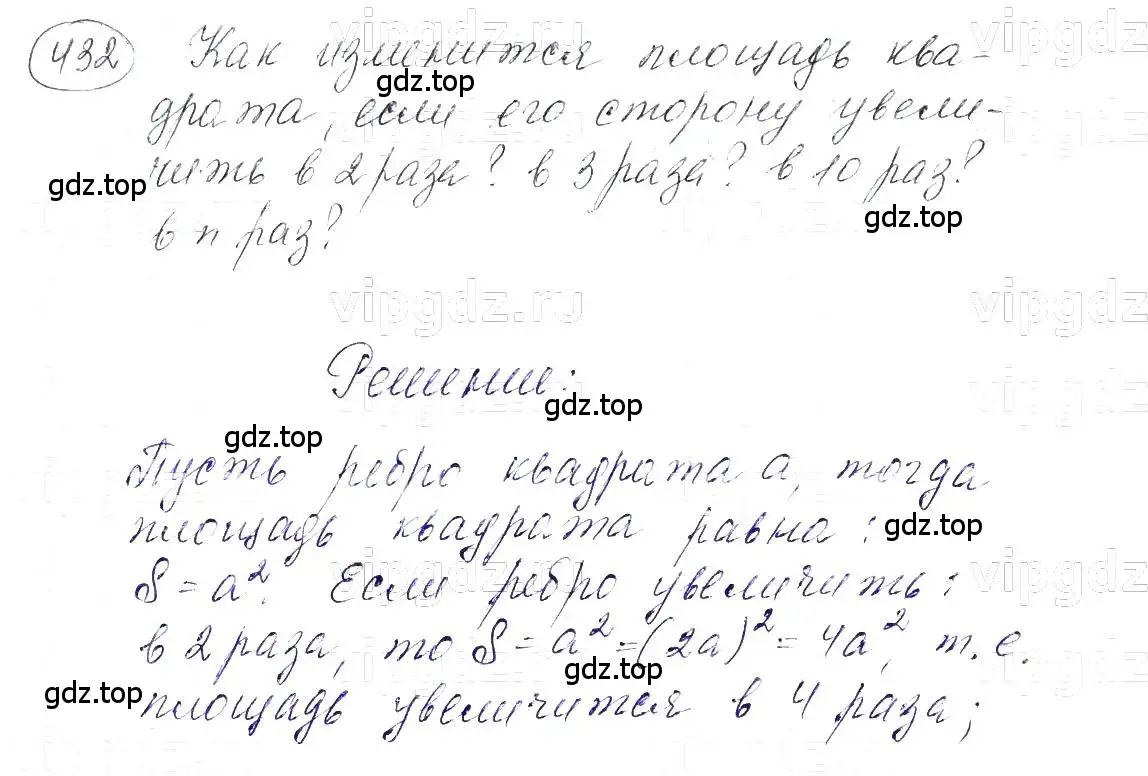 432 Как изменится площадь ква-
драта, если его сторону увели-
чить в 2 раза? в 3 раза? в 10 раз?
в n раз?
Решение:
Пусть ребро квадрата a, тогда
площадь квадрата равна:
S = a². Если ребро увеличить:
в 2 раза, то S = a² = (2a)² = 4a², т. е.
площадь увеличится в 4 раза;
vipgdz.ru
gdz.top
gdz.top
gdz.top
vipgdz.ru
vipgdz.ru
gdz.top
gdz.top
gdz.top
gdz.top
gdz.top